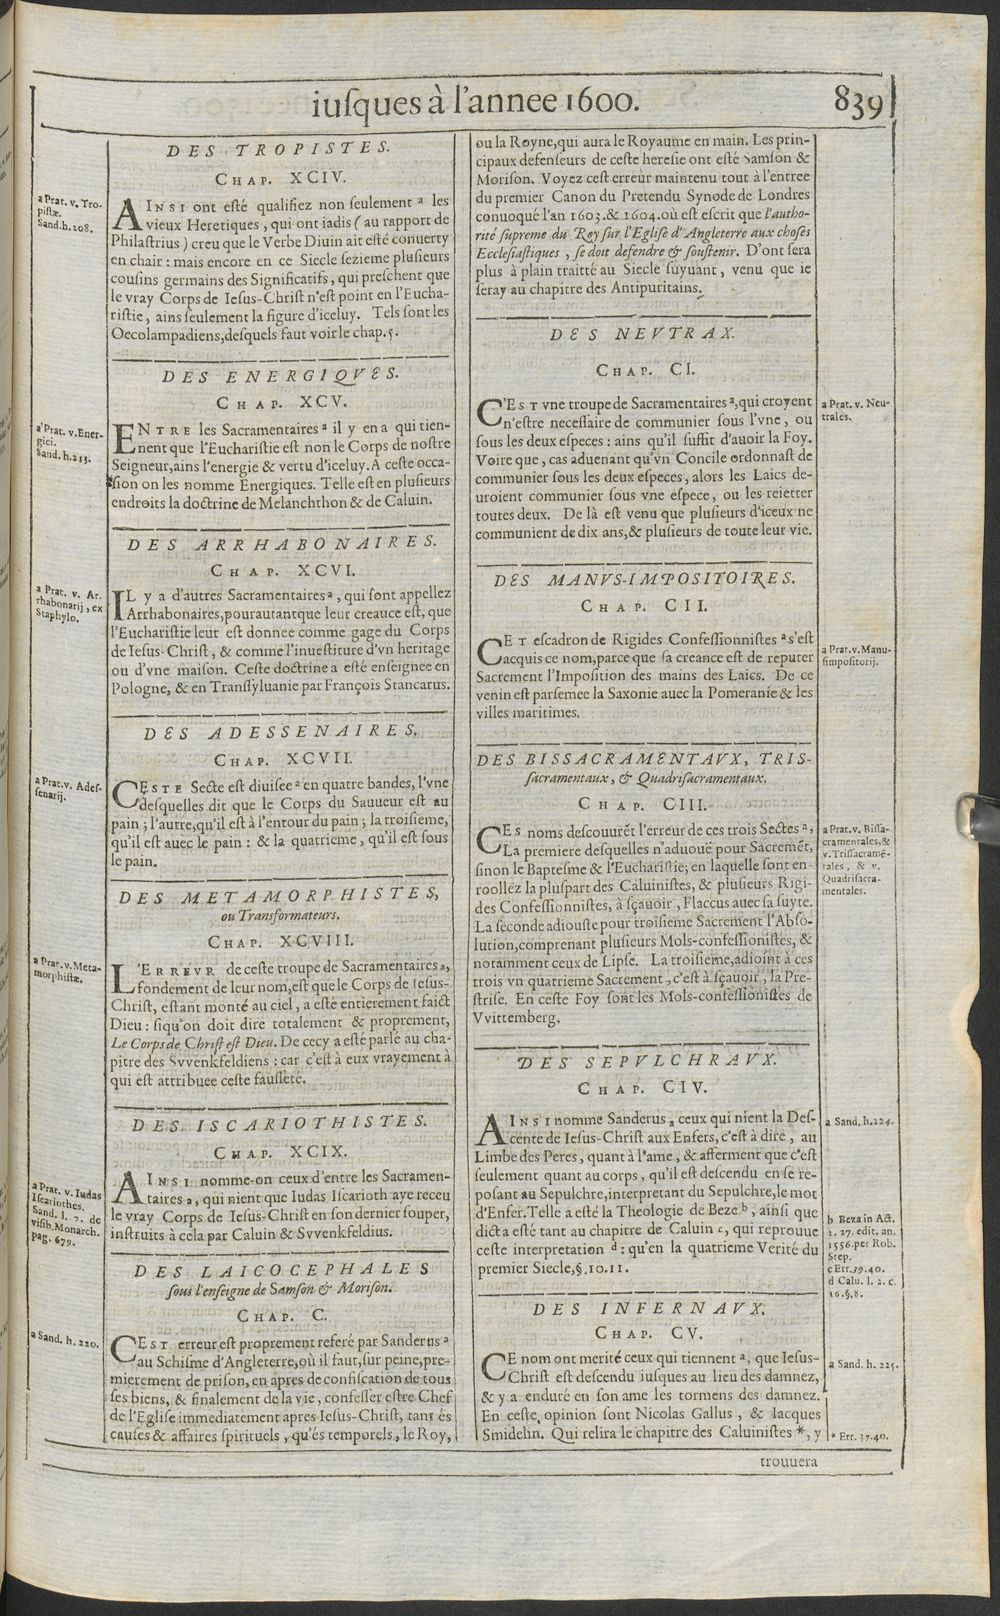 iusques à l'annee 1600. 839
DES TROPISTES.
CHAP. XCIV.
a Prat. v. Tro-
pistæ.
Sand. h. 208.
AINSI ont esté qualifiez non seulement a les
vieux Heretiques, qui ont iadis (au rapport de
Philastrius) creu que le Verbe Diuin ait esté conuerty
en chair : mais encore en ce Siecle sezieme plusieurs
cousins germains des Significatifs, qui preschent que
le vray Corps de Iesus-Christ n'est point en l'Eucha-
ristie, ains seulement la figure d'iceluy. Tels sont les
Oecolampadiens, desquels faut voir le chap. 5.
DES ENERGIQVES.
CHAP. XCV.
a Prat. v. Ener-
gici.
Sand. h. 213.
ENTRE les Sacramentaires a il y en a qui tien-
nent que l'Eucharistie est non le Corps de nostre
Seigneur, ains l'energie & vertu d'iceluy. A ceste occa-
sion on les nomme Energiques. Telle est en plusieurs
endroits la doctrine de Melanchthon & de Caluin.
DES ARRHABONAIRES.
CHAP. XCVI.
a Prat. v. Ar.
rhabonarij, ex
Staphylo.
IL y a d'autres Sacramentaires a, qui sont appellez
Arrhabonaires, pourautantque leur creauce est, que
l'Eucharistie leur est donnee comme gage du Corps
de Iesus-Christ, & comme l'inuestiture d'vn heritage
ou d'vne maison. Ceste doctrine a esté enseignee en
Pologne, & en Transsyluanie par François Stancarus.
DES ADESSENAIRES.
CHAP. XCVII.
a Prat. v. Ades-
senarij.
CESTE Secte est diuisee a en quatre bandes, l'vne
desquelles dit que le Corps du Sauueur est au
pain ; l'autre, qu'il est à l'entour du pain ; la troisieme,
qu'il est auec le pain : & la quatrieme, qu'il est sous
le pain.
DES METAMORPHISTES,
ou Transformateurs.
CHAP. XCVIII.
a Prat. v. Meta-
morphistæ.
L'ERREVR de ceste troupe de Sacramentaires a,
fondement de leur nom, est que le Corps de Iesus-
Christ, estant monté au ciel, a esté entierement faict
Dieu : siqu'on doit dire totalement & proprement,
Le Corps de Christ est Dieu. De cecy a esté parlé au cha-
pitre des Svvenkfeldiens : car c'est à eux vrayement à
qui est attribuee ceste fausseté.
DES ISCARIOTHISTES.
CHAP. XCIX.
a Prat. v. Iudas
Iscariothes.
Sand. l. 7. de
visib. Monarch.
pag. 679.
AINSI nomme-on ceux d'entre les Sacramen-
taires a, qui nient que Iudas Iscarioth aye receu
le vray Corps de Iesus-Christ en son dernier souper,
instruits à cela par Caluin & Svvenkfeldius.
DES LAICOCEPHALES
sous l'enseigne de Samson & Morison.
CHAP. C.
a Sand. h. 220.
CEST erreur est proprement referé par Sanderus a
au Schisme d'Angleterre, où il faut, sur peine, pre-
mierement de prison, en apres de confiscation de tous
ses biens, & finalement de la vie, confesser estre Chef
de l'Eglise immediatement apres Iesus-Christ, tant és
causes & affaires spirituels, qu'és temporels, le Roy,
ou la Royne, qui aura le Royaume en main. Les prin-
cipaux defenseurs de ceste heresie ont esté Samson &
Morison. Voyez cest erreur maintenu tout à l'entree
du premier Canon du Pretendu Synode de Londres
conuoqué l'an 1603. & 1604. où est escrit que l'autho-
rité supreme du Roy sur l'Eglise d'Angleterre aux choses
Ecclesiastiques, se doit defendre & soustenir. D'ont sera
plus à plain traitté au Siecle suyuant, venu que ie
seray au chapitre des Antipuritains.
DES NEVTRAX.
CHAP. CI.
C'EST vne troupe de Sacramentaires a, qui croyent
n'estre necessaire de communier sous l'vne, ou
sous les deux especes : ains qu'il suffit d'auoir la Foy.
Voire que, cas aduenant qu'vn Concile ordonnast de
communier sous les deux especes, alors les Laics de-
uroient communier sous vne espece, ou les reietter
toutes deux. De là est venu que plusieurs d'iceux ne
communient de dix ans, & plusieurs de toute leur vie.
a Prat. v. Neu-
trales.
DES MANVS-IMPOSITOIRES.
CHAP. CII.
CET escadron de Rigides Confessionnistes a s'est
acquis ce nom, parce que sa creance est de reputer
Sacrement l'Imposition des mains des Laics. De ce
venin est parsemee la Saxonie auec la Pomeranie & les
villes maritimes.
a Prat. v. Manu-
simpositorij.
DES BISSACRAMENTAVX, TRIS-
sacramentaux, & Quadrisacramentaux.
CHAP. CIII.
CES noms descouurẽt l'erreur de ces trois Sectes a,
La premiere desquelles n'aduouë pour Sacremẽt,
sinon le Baptesme & l'Eucharistie; en laquelle sont en-
roollez la pluspart des Caluinistes, & plusieurs Rigi-
des Confessionnistes, à sçauoir, Flaccus auec sa suyte.
La seconde adiouste pour troisieme Sacrement l'Abso-
lution, comprenant plusieurs Mols-confessionistes, &
notamment ceux de Lipse. La troisieme, adioint à ces
trois vn quatrieme Sacrement, c'est à sçauoir, la Pre-
strise. En ceste Foy sont les Mols-confessionistes de
Vvittemberg.
a Prat. v. Bissa-
cramentales, &
v. Trissacramẽ-
tales, & v.
Quadrisacra-
mentales.
DES SEPVLCHRAVX.
CHAP. CIV.
AINSI nomme Sanderus a ceux qui nient la Des-
cente de Iesus-Christ aux Enfers, c'est à dire, au
Limbe des Peres, quant à l'ame, & afferment que c'est
seulement quant au corps, qu'il est descendu en se re-
posant au Sepulchre, interpretant du Sepulchre, le mot
d'Enfer. Telle a esté la Theologie de Beze b, ainsi que
dict a esté tant au chapitre de Caluin c, qui reprouue
ceste interpretation d : qu'en la quatrieme Verité du
premier Siecle, §. 10. 11.
a Sand. h. 224.
b Beza in Act.
2. 27. edit. an.
1556. per Rob.
Step.
c Err. 39. 40.
d Calu. l. 2. c.
16. §. 8.
DES INFERNAVX.
CHAP. CV.
CE nom ont merité ceux qui tiennent a, que Iesus-
Christ est descendu iusques au lieu des damnez,
& y a enduré en son ame les tormens des damnez.
En ceste opinion sont Nicolas Gallus, & Iacques
Smidelin. Qui relira le chapitre des Caluinistes *, y
a Sand. h. 225.
* Err. 37. 40.
trouuera